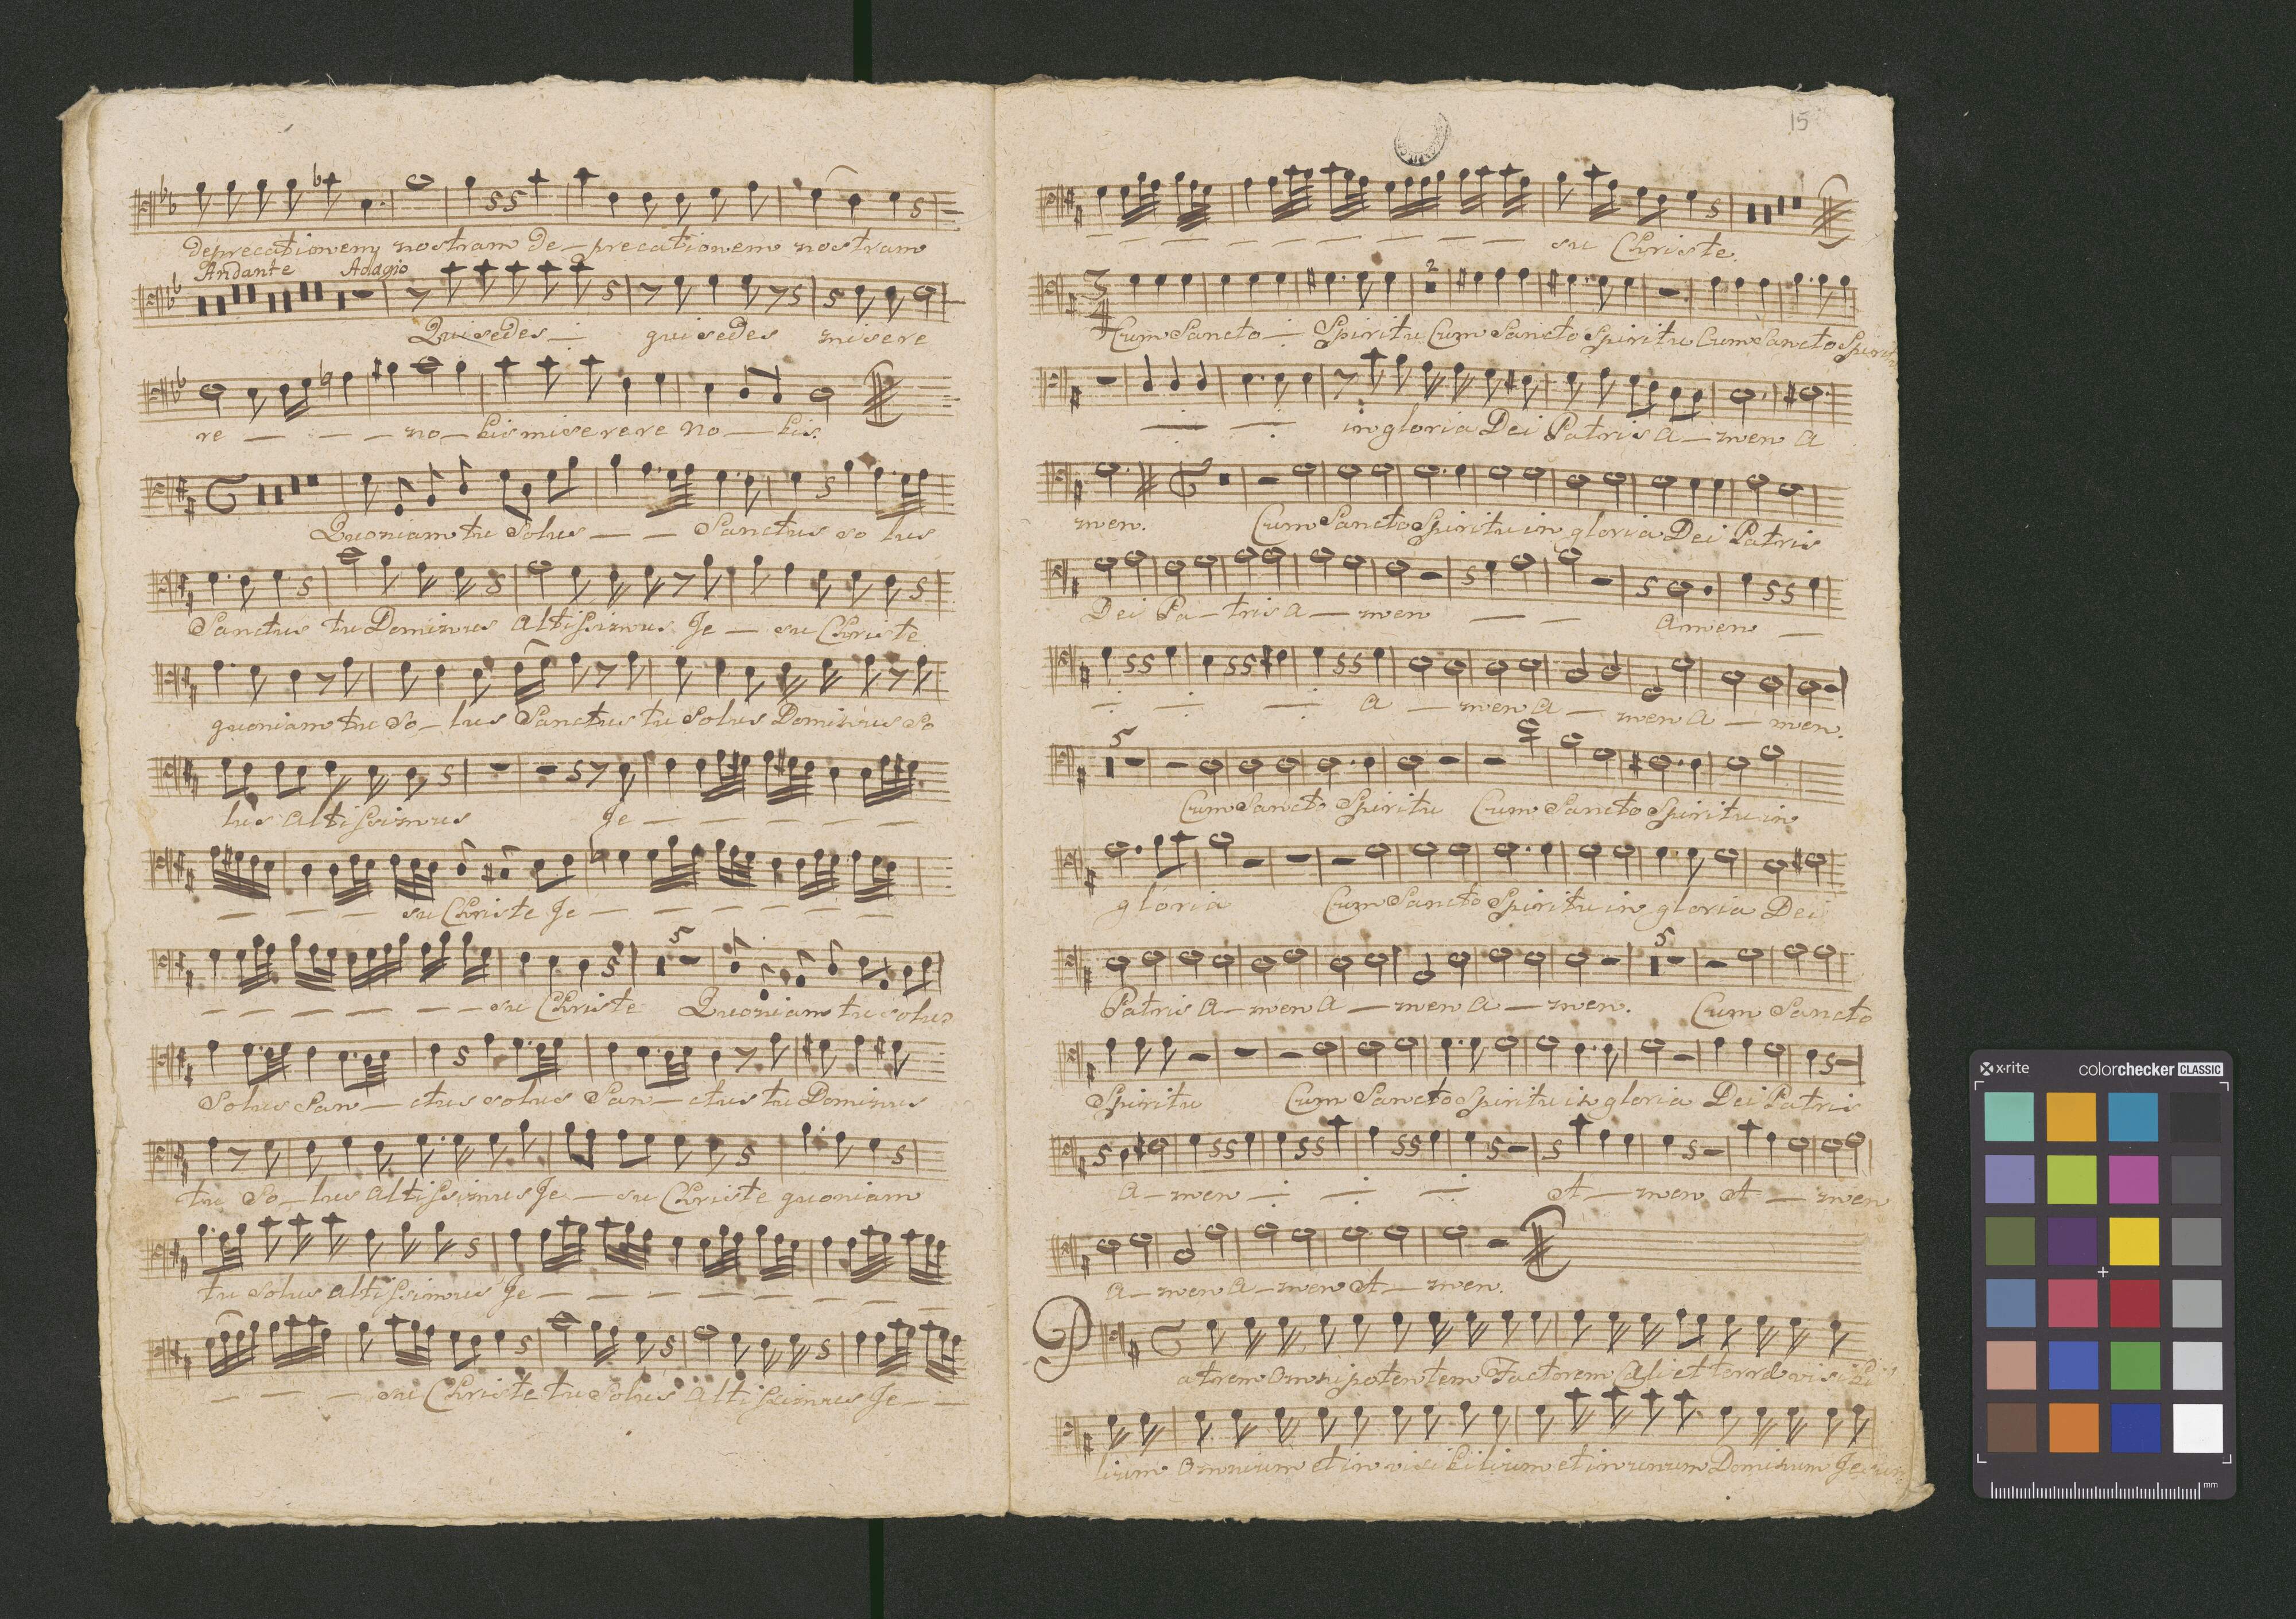 deprecationem nostram de - precationem nostram
Andante Adagio
Qui sedes - qui sedes misere
re - - - no - bis miserere no - bis.
Quoniam tu solus - - Sanctus so lus
Sanctus tu Dominus altissimus Je - su Christe
quoniam tu so - lus Sanctus tu solus Dominus so
lus altissimus Je - - - - -
- - - su Christe Je - - - - - -
5
- - - - - - su Christe Quoniam tu solus
Solus San - ctus solus San - ctus tu Dominus
tu so - lus altissimus Je - su Christe quoniam
tu solus altissimus Je - - - - - - -
- - - su Christe tu solus altissimus Je - -
15
- - - - - - - - su Christe.
3
4
2
Cum Sancto - Spiritu Cum Sancto Spiritu Cum Sancto Spiritu
in gloria Dei Patris a - men a
men. Cum Sancto Spiritu in gloria Dei Patris
Dei Pa - tris a - men - - amen -
a - men a - men a - men.
5
Cum Sancto Spiritu Cum Sancto Spiritu in
gloria Cum Sancto Spiritu in gloria Dei
5
Patris a - men a - men a - men. Cum Sancto
Spiritu Cum Sancto Spiritu in gloria Dei Patris
a - men A - men A - men
a - men a - men A - men.
Patrem omnipotentem Factorem Cæli et terræ visibi
lium omnium et invisibilium et in unum Dominum Jesum
x-rite colorchecker CLASSIC
mm